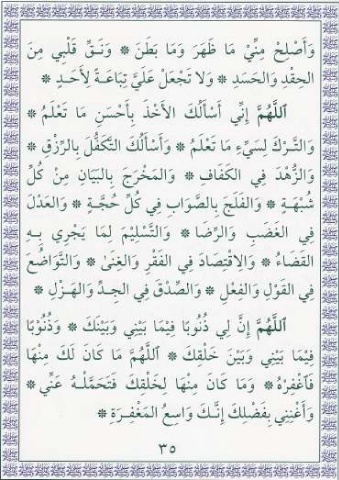 وَأَصْلِحْ مِنِّي مَا ظَهَرَ وَمَا بَطَنَ * وَنَقِّ قَلْبِي مِنَ
الحِقْدِ وَالحَسَدِ * وَلَا تَجْعَلْ عَلَيَّ تِبَاعَةً لِأَحَدٍ *
اَللَّهُمَّ إِنِّي أَسْأَلُكَ الأَخْذَ بِأَحْسَنِ مَا تَعْلَمُ *
وَالتَّرْكَ لِسَيِّءِ مَا تَعْلَمُ * وَأَسْأَلُكَ التَّكَفُّلَ بِالرِّزْقِ *
وَالزُّهْدَ فِي الكَفَافِ * وَالمَخْرَجَ بِالبَيَانِ مِنْ كُلِّ
شُبْهَةٍ * وَالفَلَجَ بِالصَّوَابِ فِي كُلِّ حُجَّةٍ * وَالعَدْلَ
فِي الغَضَبِ وَالرِّضَا * وَالتَّسْلِيمَ لِمَا يَجْرِي بِهِ
القَضَاءُ * وَالِاقْتِصَادَ فِي الفَقْرِ وَالغِنَىٰ * وَالتَّوَاضُعَ
فِي القَوْلِ وَالفِعْلِ * وَالصِّدْقَ فِي الجِدِّ وَالهَزْلِ *
اَللَّهُمَّ إِنَّ لِي ذُنُوبًا فِيمَا بَيْنِي وَبَيْنَكَ * وَذُنُوبًا
فِيمَا بَيْنِي وَبَيْنَ خَلْقِكَ * اَللَّهُمَّ مَا كَانَ لَكَ مِنْهَا
فَاغْفِرْهُ * وَمَا كَانَ مِنْهَا لِخَلْقِكَ فَتَحَمَّلْهُ عَنِّي *
وَأَغْنِنِي بِفَضْلِكَ إِنَّكَ وَاسِعُ المَغْفِرَةِ *
٣٥